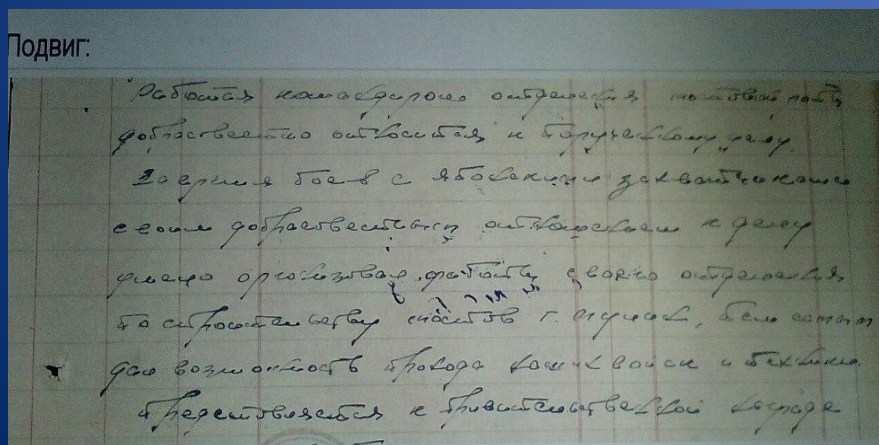 Подвиг:
Работая командиром отделения мостовой роты
добраствестно относится к порученному делу.
За время боев с японскими захватчиками
своим добраствестным отношением к делу
умело организовал работу своего отделения
по строительству мостов г. , тем самым
дал возможность прохода наших войск и техники.
представляется к правительственной награде